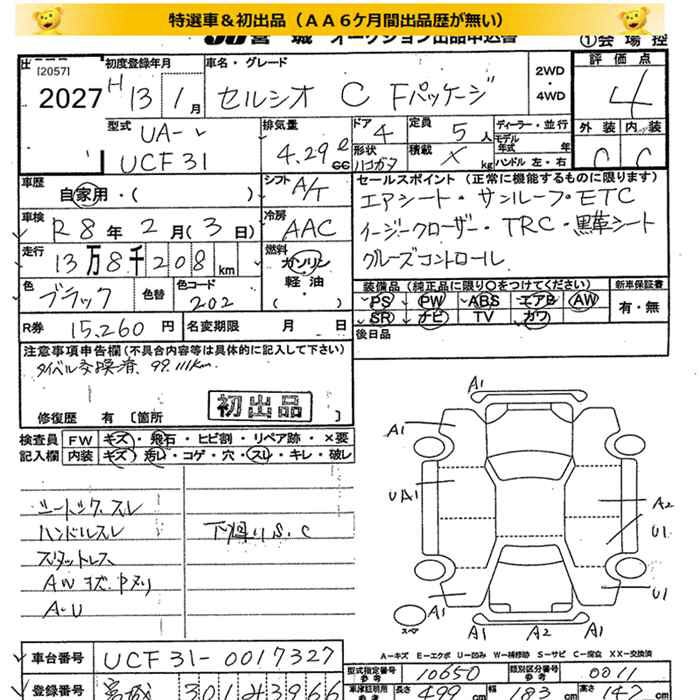 特選車&初出品(AA6ケ月間出品歴が無い)
JU宮城 オークション出品申込書 ①会場控
[2057]
2027
初度登録年月
H13 1月
車名・グレード
セルシオ C Fパッケージ
2WD・4WD
評価点
4
外装 内装
C C
型式
UA-
UCF31
排気量
4.29ℓ cc
ドア 4
定員 5人
形状 ハコガタ
積載 X kg
ディーラー・並行
モデル年式 年
ハンドル 左・右
車歴
自家用・( )
シフト A/T
セールスポイント(正常に機能するものに限ります)
エアシート・サンルーフ・ETC
イージークローザー・TRC・黒革シート
クルーズコントロール
車検
R8年2月(3日)
冷房 AAC
走行
13万8千208km
燃料
ガソリン
軽油
( )
色
ブラック
色替
色コード
202
装備品(純正品に限り○をつけてください)
PS PW ABS エアB AW
SR ナビ TV カワ
新車保証書
有・無
R券 15,260円
名変期限 月 日
後日品
注意事項申告欄(不具合内容等は具体的に記入して下さい)
タイベル交換済 99,111km
初出品
修復歴 有 〔箇所 〕
検査員記入欄
FW キズ・飛石・ヒビ割・リペア跡・×要
内装 キズ・汚レ・コゲ・穴・スレ・キレ・破レ
ハンドルスレ
下廻りS.C
スタットレス
AWキズ
A・U
A1
A1 A1
UA1 A2
U1
A1 U1
A1 A2 A1
スペア
A-キズ E-エクボ U-凹み W-補修跡 S-サビ C-腐蝕 XX-交換済
車台番号 UCF31-0017327
型式指定番号 参考 10650
類別区分番号 参考 0011
登録番号 宮城 301 み 3966
車庫証明用 参考 長さ 499cm 幅 183cm 高さ 147cm